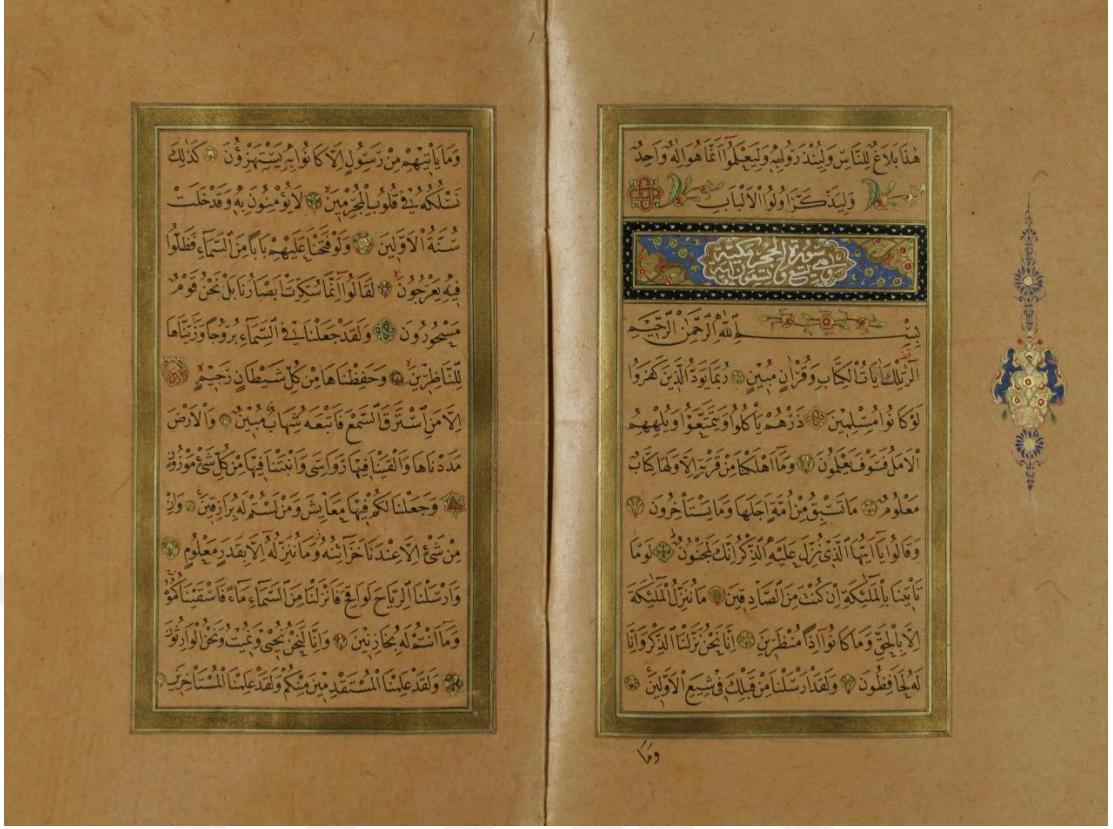 هٰذَا بَلَاغٌ لِلنَّاسِ وَلِيُنْذَرُوا بِهِ وَلِيَعْلَمُوا اَنَّمَا هُوَ اِلٰهٌ وَاحِدٌ
وَلِيَذَّكَّرَ اُولُوا الْاَلْبَابِ
سورة الحجر مكية
وهى تسع وتسعون اية
بِسْمِ اللّٰهِ الرَّحْمٰنِ الرَّحِيمِ
الٓرٰ تِلْكَ اٰيَاتُ الْكِتَابِ وَقُرْاٰنٍ مُبِينٍ رُبَمَا يَوَدُّ الَّذِينَ كَفَرُوا
لَوْ كَانُوا مُسْلِمِينَ ذَرْهُمْ يَأْكُلُوا وَيَتَمَتَّعُوا وَيُلْهِهِمُ
الْاَمَلُ فَسَوْفَ يَعْلَمُونَ وَمَا اَهْلَكْنَا مِنْ قَرْيَةٍ اِلَّا وَلَهَا كِتَابٌ
مَعْلُومٌ مَا تَسْبِقُ مِنْ اُمَّةٍ اَجَلَهَا وَمَا يَسْتَأْخِرُونَ
وَقَالُوا يَا اَيُّهَا الَّذِي نُزِّلَ عَلَيْهِ الذِّكْرُ اِنَّكَ لَمَجْنُونٌ لَوْ مَا
تَأْتِينَا بِالْمَلٰٓئِكَةِ اِنْ كُنْتَ مِنَ الصَّادِقِينَ مَا نُنَزِّلُ الْمَلٰٓئِكَةَ
اِلَّا بِالْحَقِّ وَمَا كَانُوا اِذًا مُنْظَرِينَ اِنَّا نَحْنُ نَزَّلْنَا الذِّكْرَ وَاِنَّا
لَهُ لَحَافِظُونَ وَلَقَدْ اَرْسَلْنَا مِنْ قَبْلِكَ فِي شِيَعِ الْاَوَّلِينَ
وَمَا
وَمَا يَأْتِيهِمْ مِنْ رَسُولٍ اِلَّا كَانُوا بِهِ يَسْتَهْزِؤُنَ كَذٰلِكَ
نَسْلُكُهُ فِي قُلُوبِ الْمُجْرِمِينَ لَا يُؤْمِنُونَ بِهِ وَقَدْ خَلَتْ
سُنَّةُ الْاَوَّلِينَ وَلَوْ فَتَحْنَا عَلَيْهِمْ بَابًا مِنَ السَّمَاءِ فَظَلُّوا
فِيهِ يَعْرُجُونَ لَقَالُوا اِنَّمَا سُكِّرَتْ اَبْصَارُنَا بَلْ نَحْنُ قَوْمٌ
مَسْحُورُونَ وَلَقَدْ جَعَلْنَا فِي السَّمَاءِ بُرُوجًا وَزَيَّنَّاهَا
لِلنَّاظِرِينَ وَحَفِظْنَاهَا مِنْ كُلِّ شَيْطَانٍ رَجِيمٍ
اِلَّا مَنِ اسْتَرَقَ السَّمْعَ فَاَتْبَعَهُ شِهَابٌ مُبِينٌ وَالْاَرْضَ
مَدَدْنَاهَا وَاَلْقَيْنَا فِيهَا رَوَاسِيَ وَاَنْبَتْنَا فِيهَا مِنْ كُلِّ شَيْءٍ مَوْزُونٍ
وَجَعَلْنَا لَكُمْ فِيهَا مَعَايِشَ وَمَنْ لَسْتُمْ لَهُ بِرَازِقِينَ وَاِنْ
مِنْ شَيْءٍ اِلَّا عِنْدَنَا خَزَائِنُهُ وَمَا نُنَزِّلُهُ اِلَّا بِقَدَرٍ مَعْلُومٍ
وَاَرْسَلْنَا الرِّيَاحَ لَوَاقِحَ فَاَنْزَلْنَا مِنَ السَّمَاءِ مَاءً فَاَسْقَيْنَاكُمُوهُ
وَمَا اَنْتُمْ لَهُ بِخَازِنِينَ وَاِنَّا لَنَحْنُ نُحْيِي وَنُمِيتُ وَنَحْنُ الْوَارِثُونَ
وَلَقَدْ عَلِمْنَا الْمُسْتَقْدِمِينَ مِنْكُمْ وَلَقَدْ عَلِمْنَا الْمُسْتَأْخِرِينَ